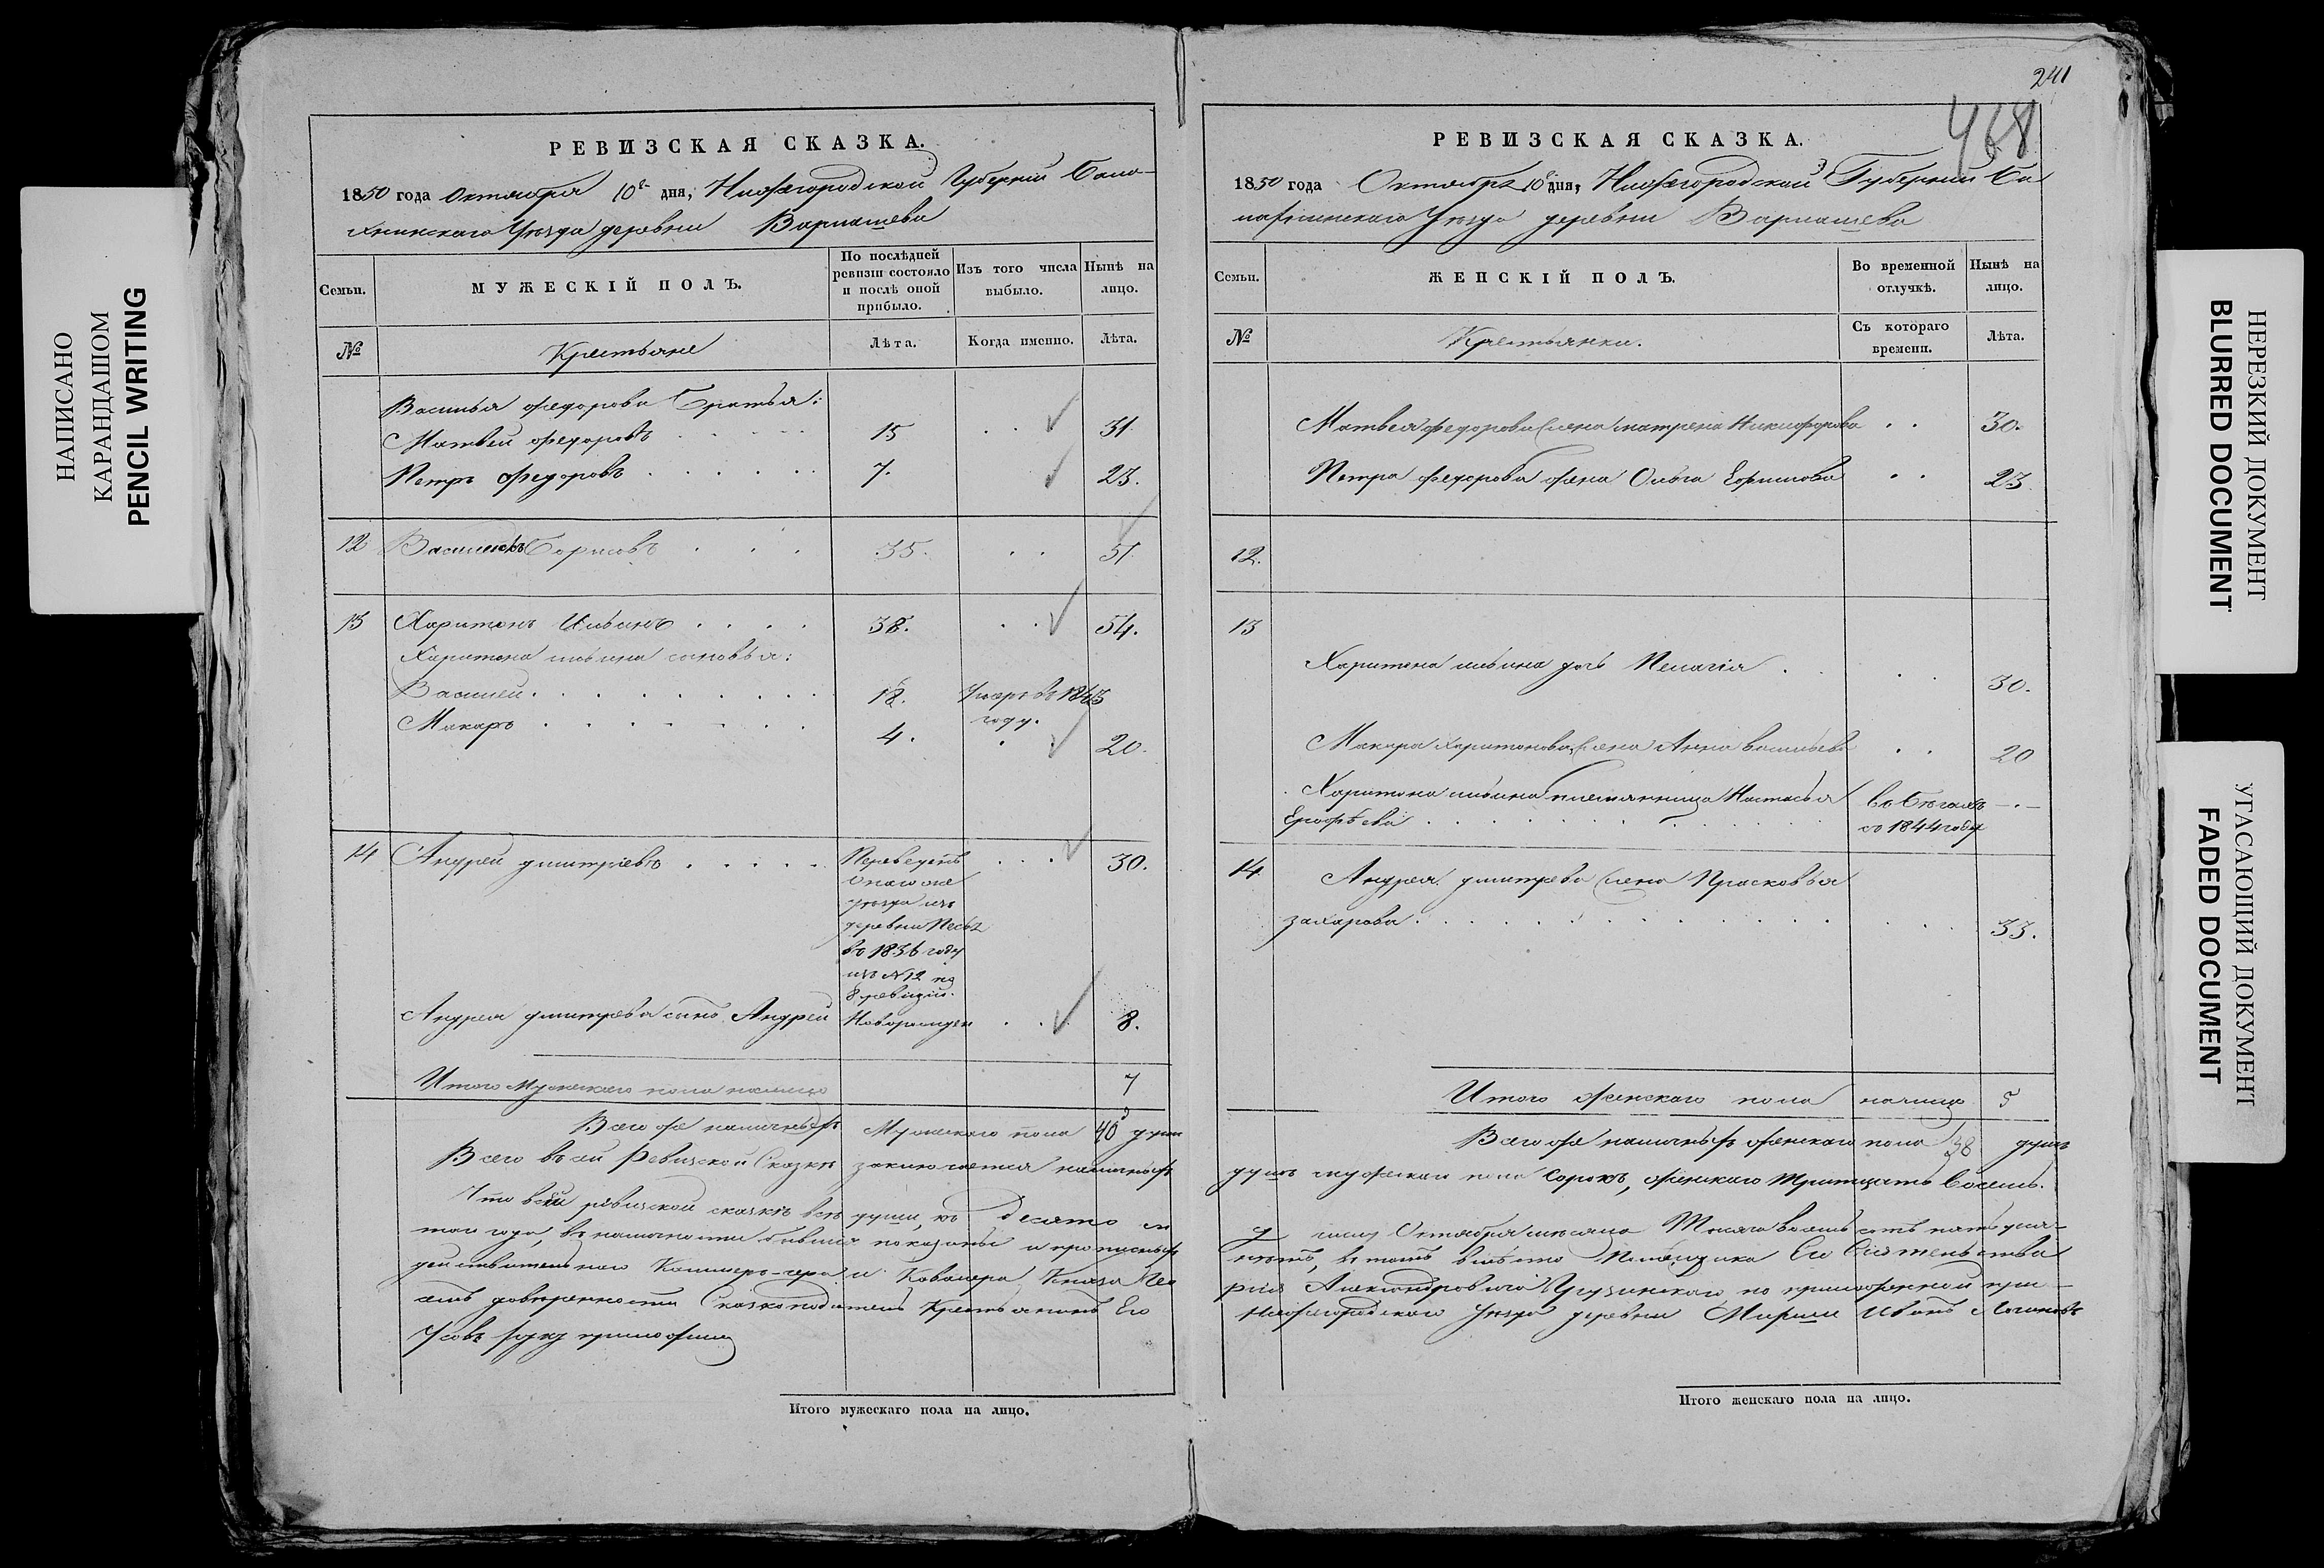 НАПИСАНО
КАРАНДАШОМ
PENCIL WRITING
РЕВИЗСКАЯ СКАЗКА.
1850 года Октября 10го дня, Нижегородской Губернии Бала-
хнинскаго Уезда деревни Варнашева
Семьи.
МУЖЕСКІЙ ПОЛЪ.
По послѣдней ревизіи состояло и послѣ оной прибыло.
Изъ того числа выбыло.
Нынѣ на лицо.
№
Крестьяне
Лѣта.
Когда именно.
Лѣта.
Василья федорова Братья:
Матвей федоровъ 15 31
Петръ федоровъ 7. 23.
12 Борисовъ 35. 51
13 Харитонъ Ильинъ 38. 54.
Харитона ильина сыновья:
Василей 18. Умеръ въ 1843 году.
Макаръ 4. 20.
14 Андрей дмитріевъ 30.
Переведенъ
онаго же
уезда изъ
деревни
въ 1836 году
изъ №12 по
8 ревизіи.
Андрея дмитрева сынъ Андрей Новорожден 8.
Итого Мужескаго пола налицо 7
Всего же наличныхъ Мужескаго пола 40 душъ
Всего въ сей Ревизской Сказкѣ заключается наличныхъ
Что въ сей ревизской сказкѣ всѣ души, къ Десято
того года, въ наличности бывшія показаны и прописныхъ
действительнаго Каммеръ-гера и Кавалера Князя
доверенности Сказкоподатель Крестьянинъ Его
Усовъ руку приложилъ
Итого мужескаго пола на лицо.
241
468
РЕВИЗСКАЯ СКАЗКА.
1850 года Октября 10го дня, Нижегородской Губернии Ба
лахнинскаго Уезда деревни Варнашева
Семьи.
ЖЕНСКІЙ ПОЛЪ.
Во временной отлучкѣ.
Нынѣ на лицо.
№
Крестьянки.
Съ котораго времени.
Лѣта.
Матвея федорова жена матрена Никифорова 30.
Петра федорова жена Ольга Ефимова 23
12.
13
Харитона ильина дочь Пелагія 30.
Макара харитонова жена Анна васильева 20
Харитона ильина племянница Настасья
Ерофѣева
въ бегахъ
съ 1844 году
14 Андрея дмитрева жена Прасковья
захарова 33.
Итого женскаго пола налицо 5
Всего же наличныхъ женскаго пола 38 душъ
душъ мужескаго пола Сорокъ, женскаго тритцать восемь.
число Октября месяца Тысяча восемь сотъ пятьдеся-
нѣтъ, въ томъ вместо Помещика Его Сіятельства
Александровича Грузинскаго по приложенной при
Нижегородскаго Уезда деревни Иванъ Логиновъ
Итого женскаго пола на лицо.
НЕРЕЗКИЙ ДОКУМЕНТ
BLURRED DOCUMENT
УГАСАЮЩИЙ ДОКУМЕНТ
FADED DOCUMENT